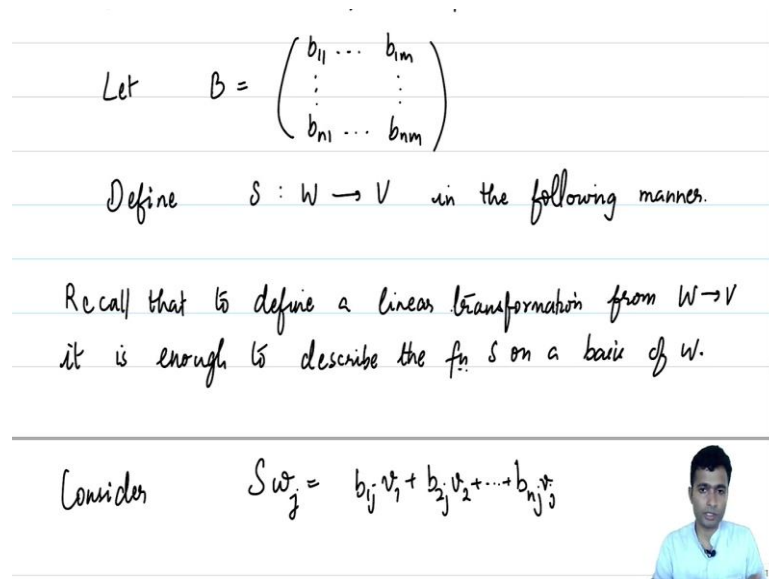 Let B = ( b₁₁ ... b₁ₘ
⋮ ⋮
bₙ₁ ... bₙₘ )
Define S : W → V in the following manner.
Recall that to define a linear transformation from W→V
it is enough to describe the fn S on a basis of W.
Consider Swⱼ = b₁ⱼv₁ + b₂ⱼv₂ + ... + bₙⱼvⱼ